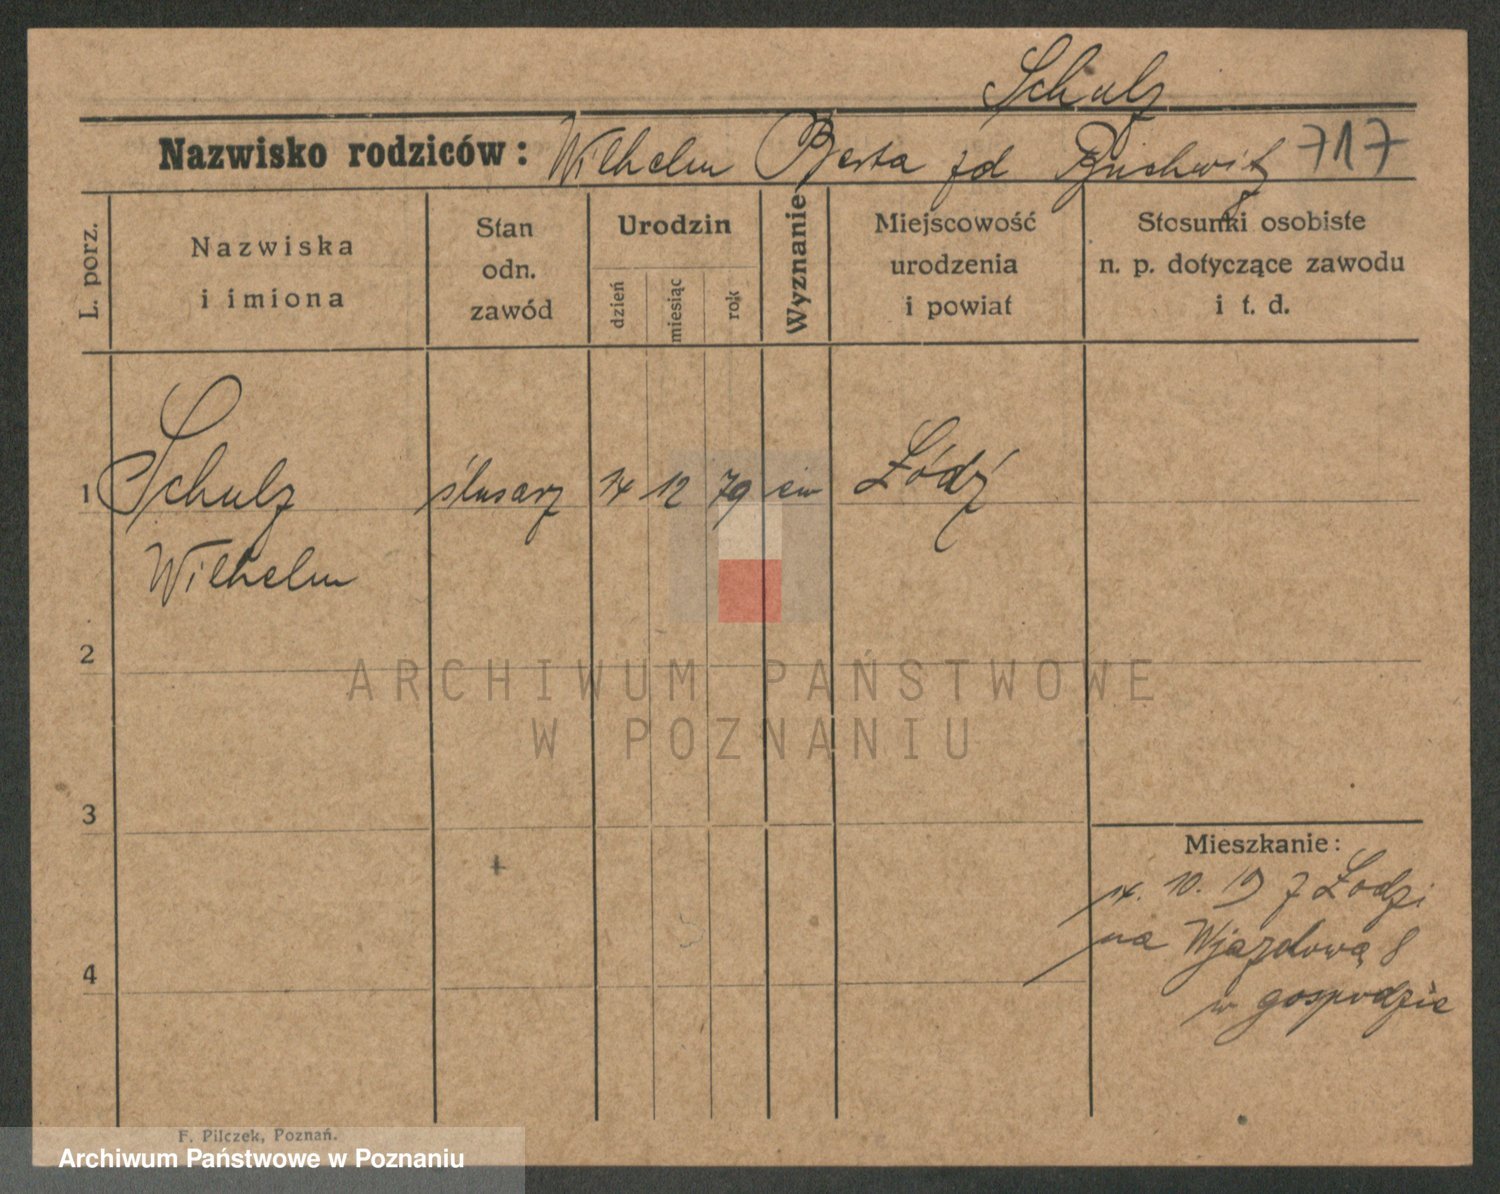 Schulz
Nazwisko rodziców: Wilhelm Berta zd Buchwitz 717
L. porz.
Nazwiska
i imiona
Stan
odn.
zawód
Urodzin
dzień miesiąc rok
Wyznanie
Miejscowość
urodzenia
i powiat
Stosunki osobiste
n. p. dotyczące zawodu
i t. d.
1 Schulz ślusarz 14 12 79 ew Łódź
Wilhelm
2
ARCHIWUM PAŃSTWOWE
W POZNANIU
3
Mieszkanie:
14. 10. 19 z Łodzi
na Wjazdową 8
w gospodzie
4
F. Pilczek, Poznań.
Archiwum Państwowe w Poznaniu